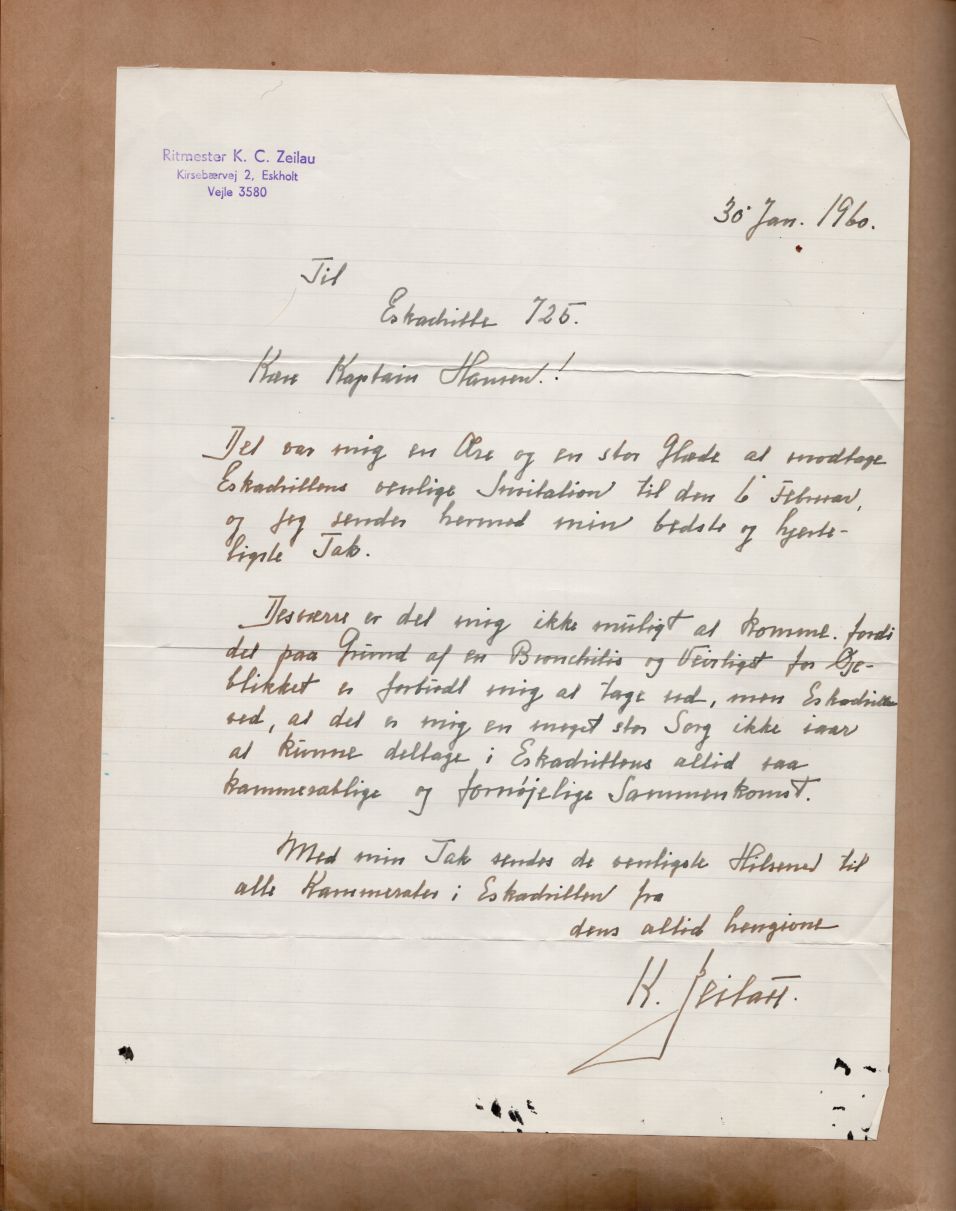 Ritmester K. C. Zeilau
Kirsebærvej 2, Eskholt
Vejle 3580
30 Jan. 1960.
Til
Eskadrille 725.
Kære Kaptain Hansen.!
Det var mig en Ære og en stor Glæde at modtage
Eskadrillens venlige Invitation til den 6 Februar,
og jeg sender hermed min bedste og hjerte-
ligste Tak.
Desværre er det mig ikke muligt at komme. fordi
det paa Grund af en Bronchitis og Veirliget for Øje-
blikket er forbudt mig at tage ud, men Eskadrillen
ved, at det er mig en meget stor Sorg ikke iaar
at kunne deltage i Eskadrillens altid saa
kammeratlige og fornøjelige Sammenkomst.
Med min Tak sendes de venligste Hilsener til
alle Kammerater i Eskadrillen fra
dens altid hengivne
K. Zeilau.